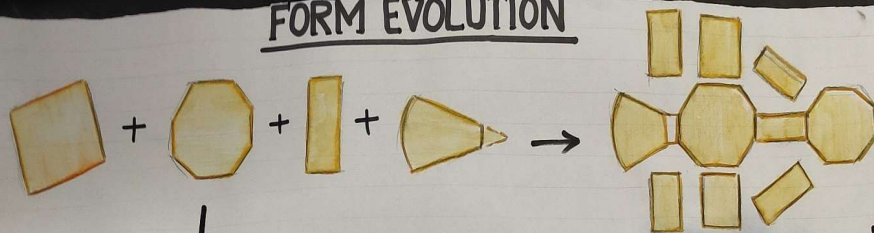 FORM EVOLUTION
+ + + →